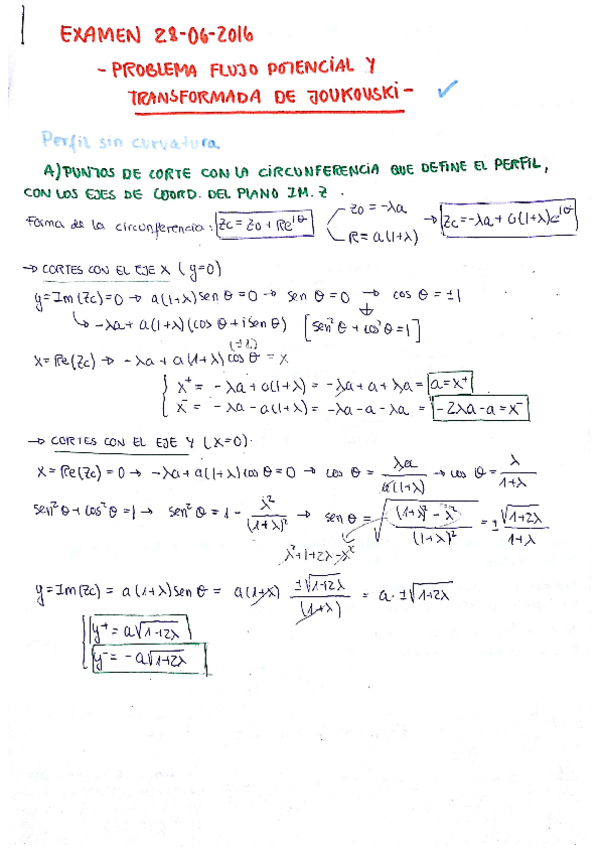 EXAMEN 28-06-2016
- PROBLEMA FLUJO POTENCIAL Y
TRANSFORMADA DE JOUKOUSKI -
Perfil sin curvatura
A) PUNTOS DE CORTE CON LA CIRCUNFERENCIA QUE DEFINE EL PERFIL,
CON LOS EJES DE COORD. DEL PLANO IM. Z.
Forma de la circunferencia: Zc = Z0 + Re^iθ
Z0 = -λa
R = a(1+λ)
→ Zc = -λa + a(1+λ)e^iθ
→ CORTES CON EL EJE X (y=0)
y = Im(Zc) = 0 → a(1+λ) sen θ = 0 → sen θ = 0 → cos θ = ±1
↳ -λa + a(1+λ)(cos θ + i sen θ) [sen²θ + cos²θ = 1]
(±1)
x = Re(Zc) → -λa + a(1+λ) cos θ = x
x⁺ = -λa + a(1+λ) = -λa + a + λa = a = x⁺
x⁻ = -λa - a(1+λ) = -λa - a - λa = -2λa - a = x⁻
→ CORTES CON EL EJE Y (x=0).
x = Re(Zc) = 0 → -λa + a(1+λ) cos θ = 0 → cos θ = λa / a(1+λ) → cos θ = λ / 1+λ
sen²θ + cos²θ = 1 → sen²θ = 1 - λ² / (1+λ)² → sen θ = √((1+λ)² - λ² / (1+λ)²) = ± √1+2λ / 1+λ
λ² + 1 + 2λ - λ²
y = Im(Zc) = a(1+λ) sen θ = a(1+λ) ±√1+2λ / (1+λ) = a · ±√1+2λ
y⁺ = a√1+2λ
y⁻ = -a√1+2λ